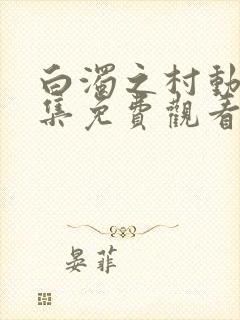 白濁之村動
集免費觀看
晏菲